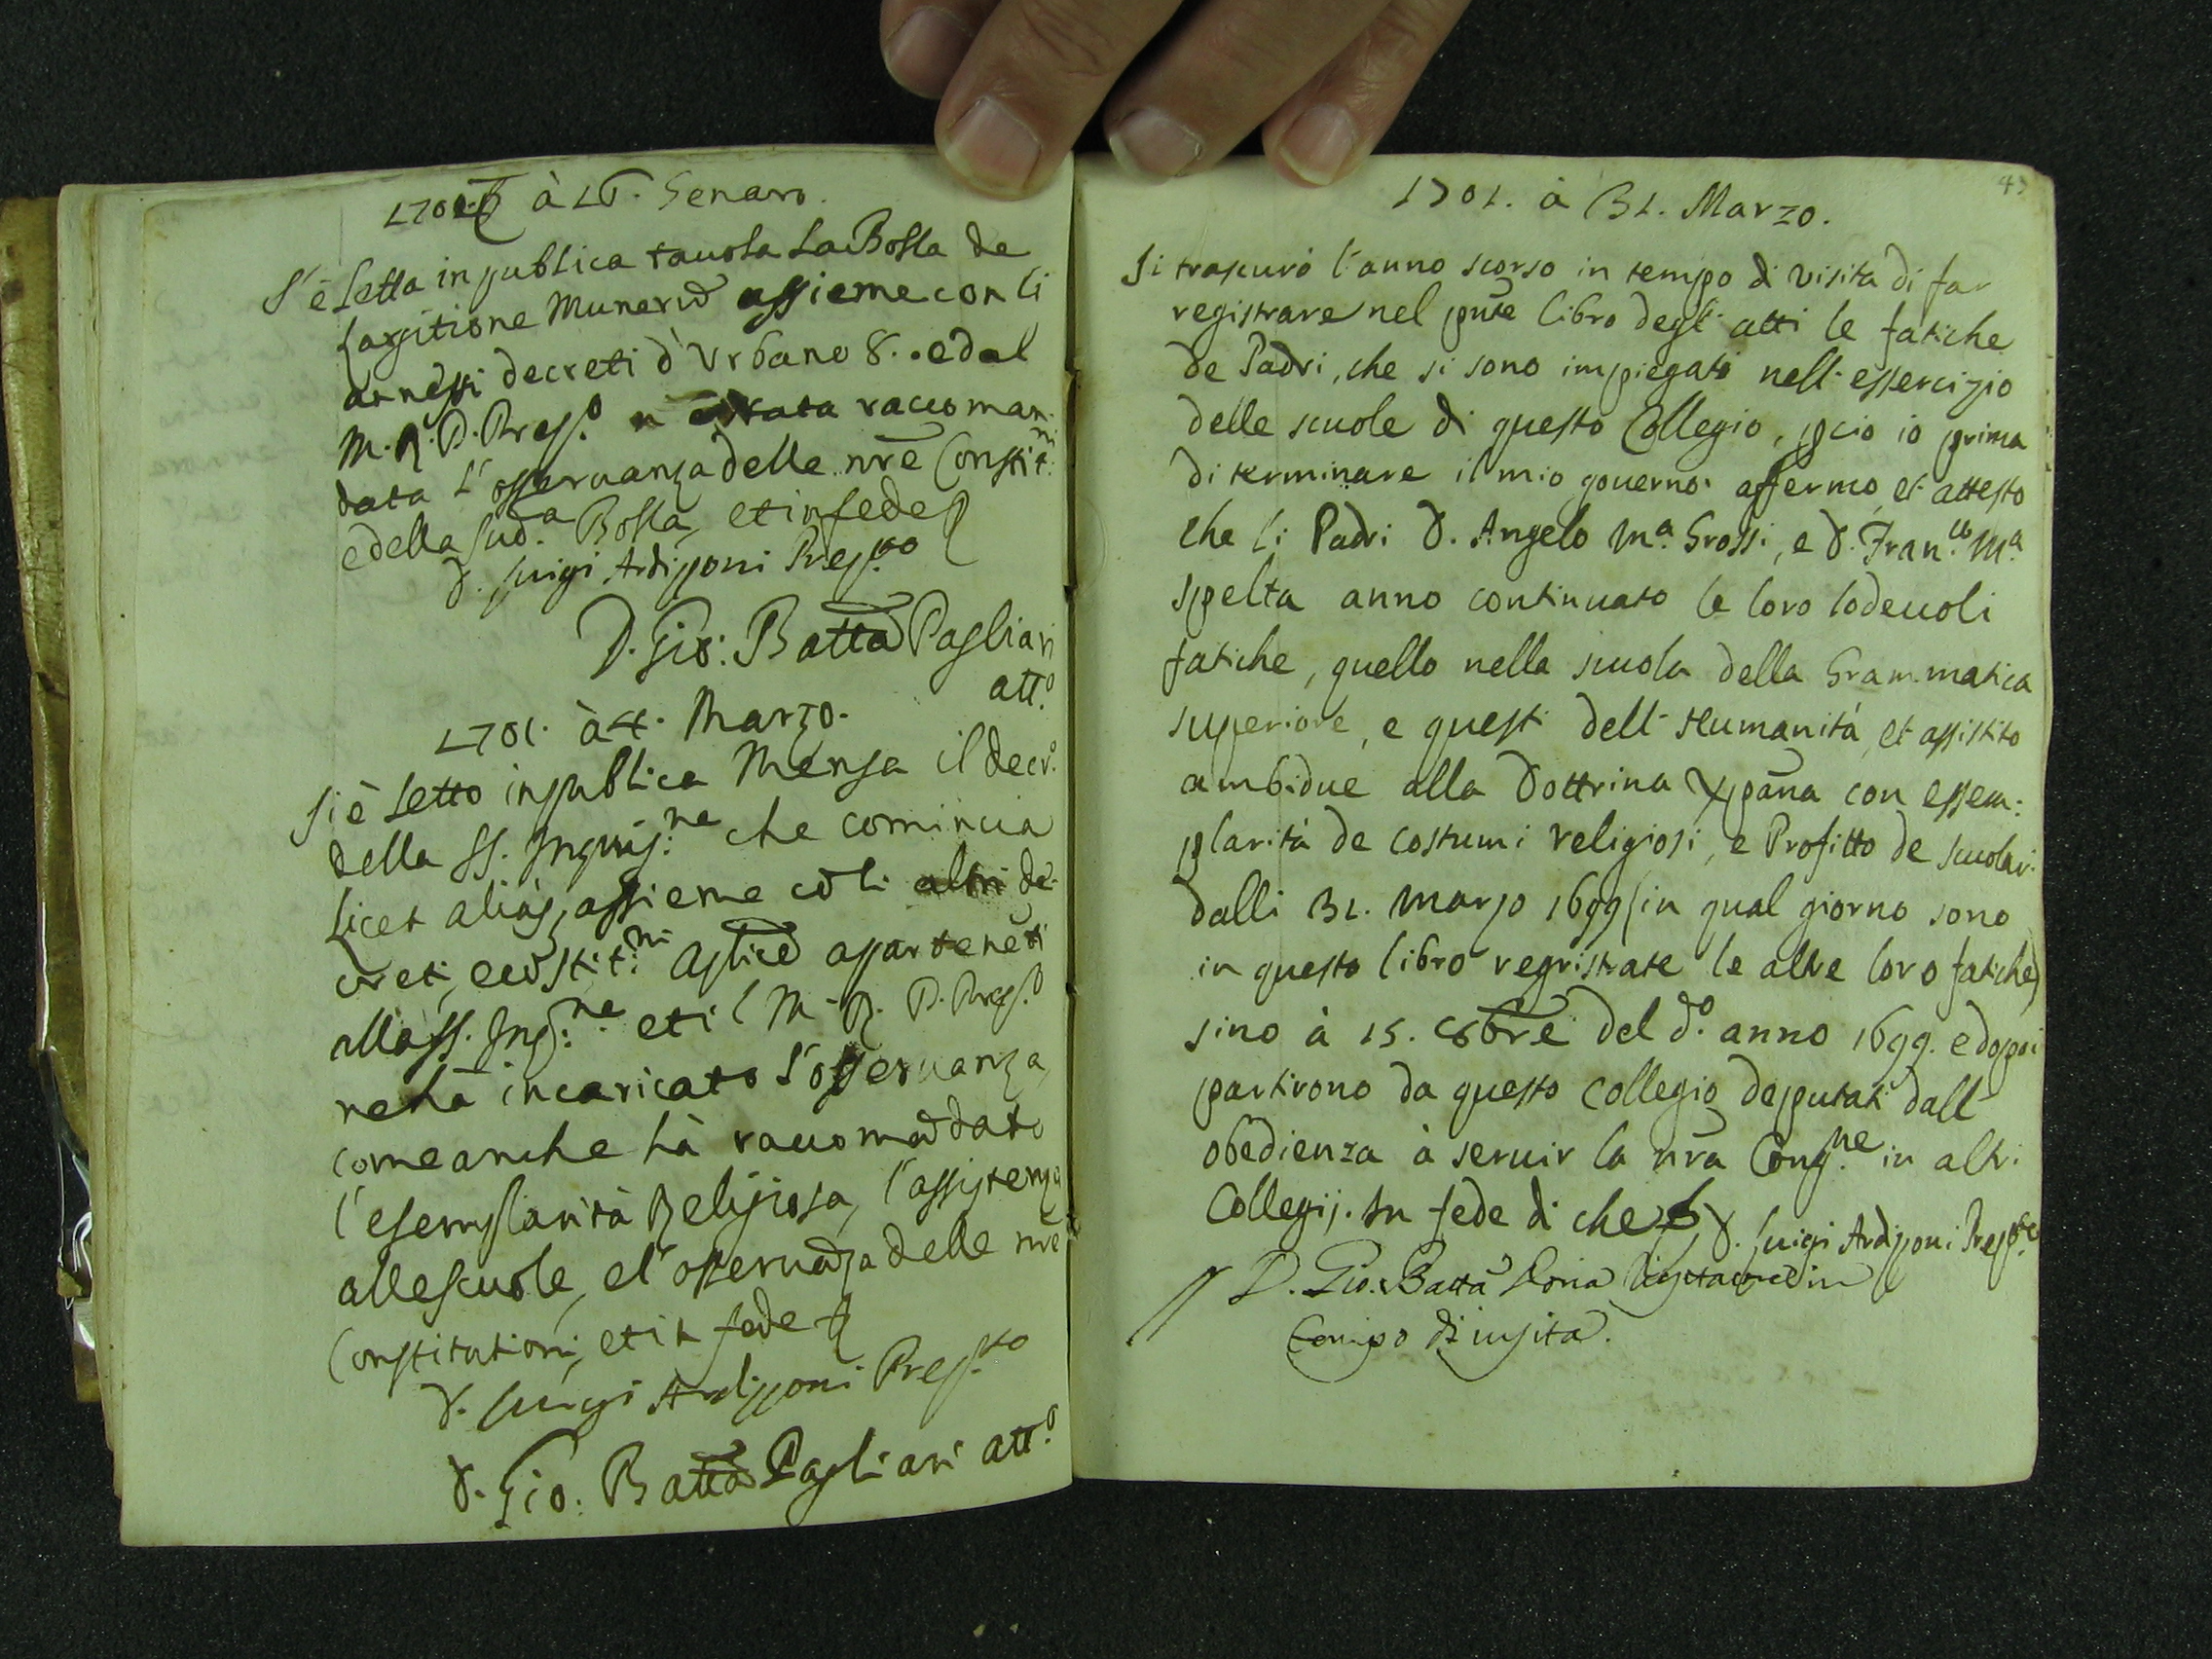 à 16. Genaro.
S'è letta in publica tauola la Bolla de
largitione Munerũ assieme con li
annessi decreti d'Urbano 8.. e dal
M. R. P. Prep.º è stata raccoman
data l'osseruanza delle nr̃e Constit.ni
e della sud.a Bolla, et in fede
D. Luigi Ardizzoni Prep.to
D. Gio: Batta Pagliari
att.º
1701. à 4. Marzo.
Si è letto in publica Mensa il decr.º
della SS. Inquis.ne che comincia
Licet aliàs, assieme cõ li altri de-
creti, e cõstit.ni Aplicẽ appartenẽti
alla SS. Inq.ne et il M. R. P. Prep.º
ne hà incaricato l'osseruanza,
come anche hà raccomãdato
l'esemplarità Religiosa, l'assistenza
alle scuole, e l'osseruãza delle nr̃e
Constitutioni, et in fede
D. Luigi Ardizzoni Prep.to
D. Gio: Batta Pagliari att.º
43
1701. à 31. Marzo.
Si trascurò l'anno scorso in tempo di visita di far
registrare nel pñte libro degl' atti le fatiche
de Padri, che si sono impiegati nell' essercizio
delle scuole di questo Collegio, pciò io prima
di terminare il mio gouerno affermo, et attesto
che li Padri D. Angelo M.a Grossi, e D. Fran.co M.a
Spelta anno continuato le loro lodeuoli
fatiche, quello nella scuola della Grammatica
superiore, e questi dell' Humanità, et assistito
ambidue alla Dottrina Xp̃ana con essem:
plarità de costumi religiosi, e Profitto de scuolari
dalli 31. Marzo 1699 (in qual giorno sono
in questo libro regristrate le altre loro fatiche)
sino à 15. 8bre del d.º anno 1699. e doppoi
partirono da questo Collegio deputati dall'
obedienza à seruir la nr̃a Cong.ne in altri
Collegij. In fede di che D. Luigi Ardizzoni Prep.to
D. Gio. Batta Doria Visitatore in
tempo di uisita.